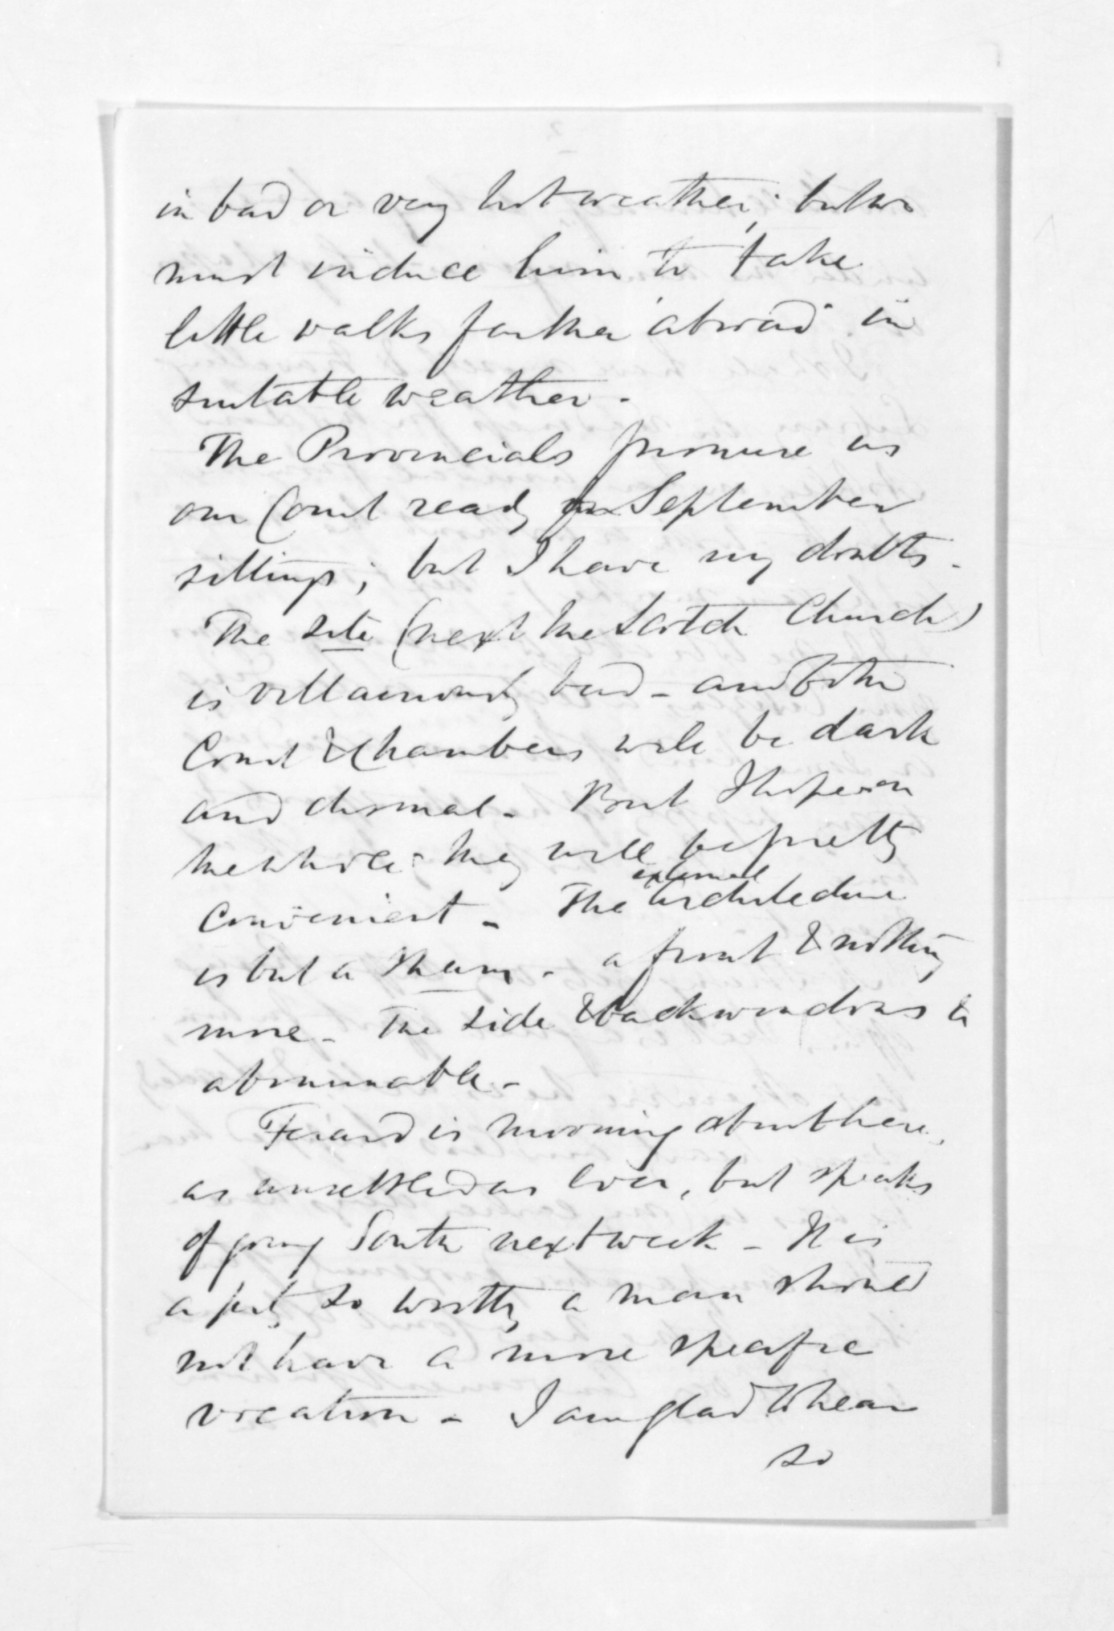 in bad or very hot weather; but we
must induce him to take
little walks farther abroad in
suitable weather.
The Provincials promise us
our Court ready for September
sittings; but I have my doubts.
The site (next the Scotch Church)
is villainously bad - and both
Court & Chambers will be dark
and dismal. But I hope on
the whole they will be pretty
convenient - The external architecture
is but a sham - a front & nothing
more - The side & back windows
abominable -
Ferard is mooning about here,
as unsettled as ever, but speaks
of going South next week - It is
a pity so worthy a man should
not have a more specific
vocation - I am glad to hear
so